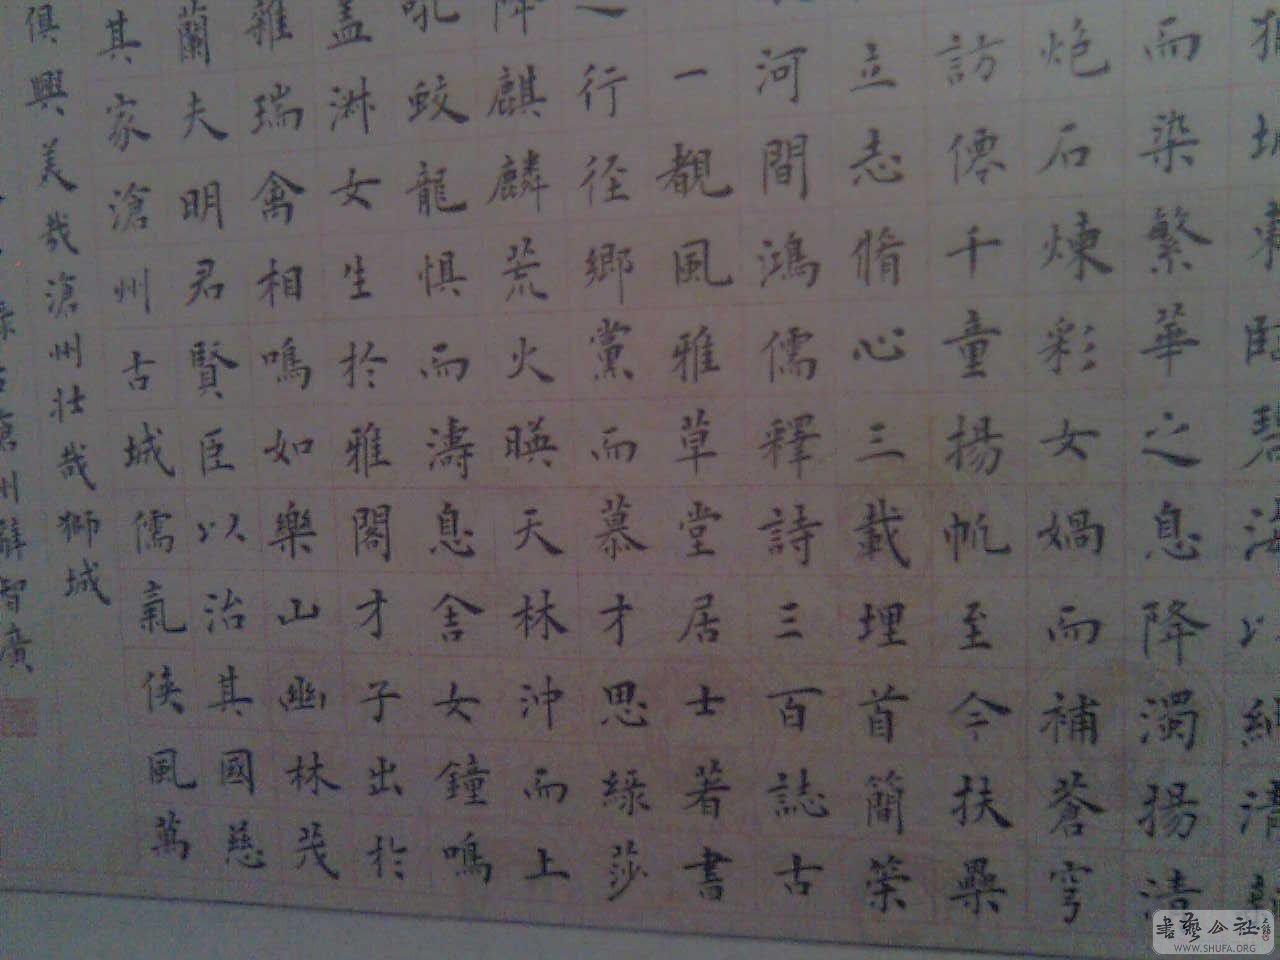 東臨碧海
而染繁華之息降濁揚清
炮石煉彩女媧而補蒼穹
訪僊千童揚帆至今扶桑
立志脩心三載埋首簡策
河間鴻儒釋詩三百誌古
一覩風雅草堂居士著書
行径鄉黨而慕才思綠莎
降麒麟荒火暎天林沖而上
吼蛟龍惧而濤息舍女鐘鳴
盖淋女生於雅閣才子出於
雜瑞禽相鳴如樂山幽林茂
蘭夫明君賢臣以治其國慈
其家滄州古城儒氣俠風萬
俱興美哉滄州壯哉獅城
滄州薛智廣
書藝公社
WWW.SHUFA.ORG